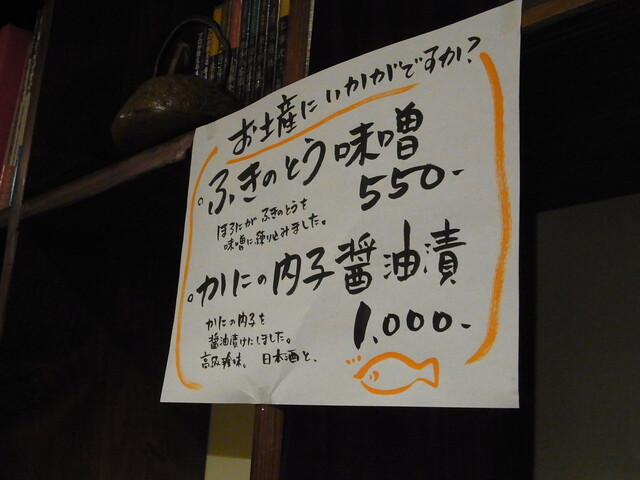 お土産にいかがですか?
。ふきのとう味噌
550-
ほろにがふきのとうを
味噌に練り込みました。
。かにの内子醤油漬
1,000-
かにの内子を
醤油漬けにしました。
高級珍味。 日本酒と、